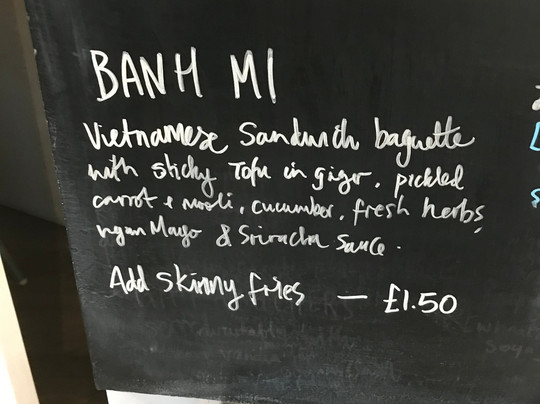 BANH MI
Vietnamese Sandwich baguette
with sticky Tofu in giger, pickled
carrot & mooli, cucumber, fresh herbs,
vegan Mayo & Sriracha sauce.
Add skinny fries — £1.50